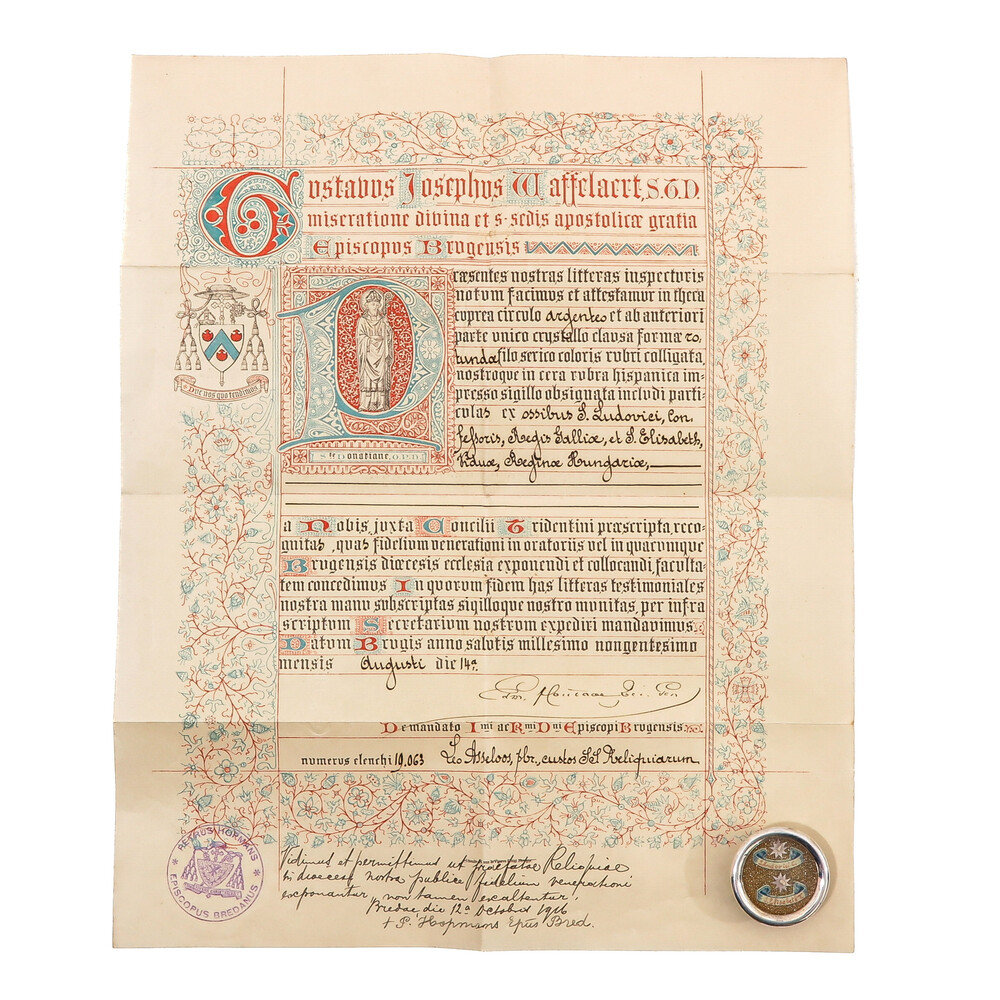 Gustavus Josephus Waffelaert, S.T.D.
miseratione divina et s. sedis apostolicæ gratia
Episcopus Brugensis
Præsentes nostras litteras inspecturis
notum facimus et attestamur in theca
cuprea circulo argenteo et ab anteriori
parte unico crystallo clausa formæ ro-
tundæ filo serico coloris rubri colligata,
nostroque in cera rubra hispanica im-
presso sigillo obsignata includi parti-
culas ex ossibus S. Ludovici, Con
fessoris, Regis Galliæ, et S. Elisabeth,
Viduæ, Reginæ Hungariæ,
Duc nos quo tendimus
Ste Donatiane. O.P.N.
a Nobis, juxta Concilii Tridentini præscripta, reco-
gnitas, quas fidelium venerationi in oratoriis vel in quacumque
Brugensis diœcesis ecclesia exponendi et collocandi, faculta-
tem concedimus In quorum fidem has litteras testimoniales
nostra manu subscriptas sigilloque nostro munitas, per infra
scriptum Secretarium nostrum expediri mandavimus.
Datum Brugis anno salutis millesimo nongentesimo
mensis Augusti die 14ª.
De mandato Imi ac Rmi Dni Episcopi Brugensis
numerus elenchi 19,063 Leo Asseloos, pbr., custos SS Reliquiarum
PETRUS HOPMANS
EPISCOPUS BREDANUS
Vidimus et permittimus ut præfatae Reliquiae
in dioecesi nostra publicae fidelium venerationi
exponantur, non tamen excaltentur.
Bredae die 12ª Octobris 1916
+ P. Hopmans Epus Bred.